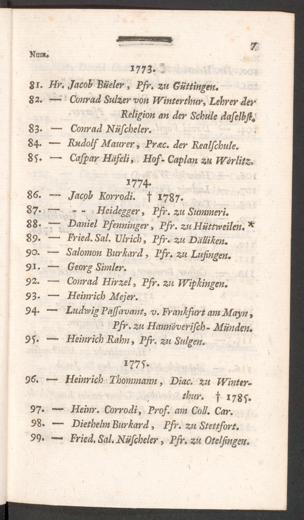 7
Num.
1773.
81. Hr. Jacob Büeler, Pfr. zu Güttingen.
82. — Conrad Sulzer von Winterthur, Lehrer der
Religion an der Schule daselbst.
83. — Conrad Nüscheler.
84. — Rudolf Maurer, Præc. der Realschule.
85. — Caspar Häfeli, Hof-Caplan zu Wörlitz.
1774.
86. — Jacob Korrodi. † 1787.
87. — -- Heidegger, Pfr. zu Summeri.
88. — Daniel Pfenninger, Pfr. zu Hüttweilen. *
89. — Fried. Sal. Ulrich, Pfr. zu Dälliken.
90. — Salomon Burkard, Pfr. zu Lufingen.
91. — Georg Simler.
92. — Conrad Hirzel, Pfr. zu Wipkingen.
93. — Heinrich Mejer.
94. — Ludwig Passavant, v. Frankfurt am Mayn,
Pfr. zu Hannöverisch-Münden.
95. — Heinrich Rahn, Pfr. zu Sulgen.
1775.
96. — Heinrich Thommann, Diac. zu Winter-
thur. † 1785.
97. — Heinr. Corrodi, Prof. am Coll. Car.
98. — Diethelm Burkard, Pfr. zu Stettfort.
99. — Fried. Sal. Nüscheler, Pfr. zu Otelfingen.